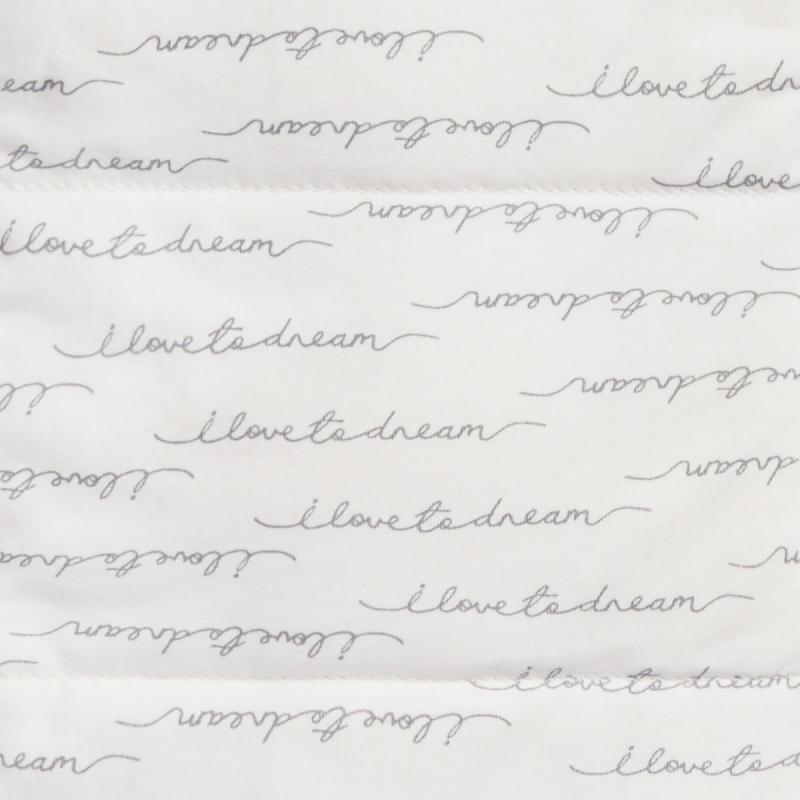 i love to dream
eam
i love to dr
i love to dream
to dream
i love
i love to dream
i love to dream
i love to dream
i love to dream
i love to
i l
i love to dream
dream
i love to
i love to dream
i love to drea
i love to dream
i love to dream
i love to dream
i love to dream
ream
i love to d